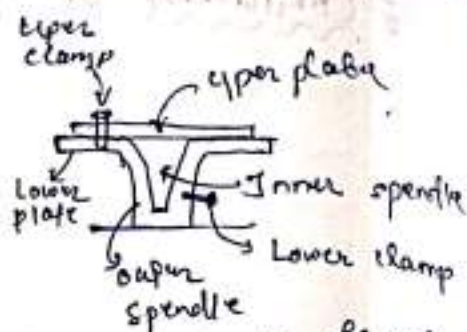 uper
clamp
uper plate
Lower
plate
Inner spendle
Lower clamp
outer
spendle